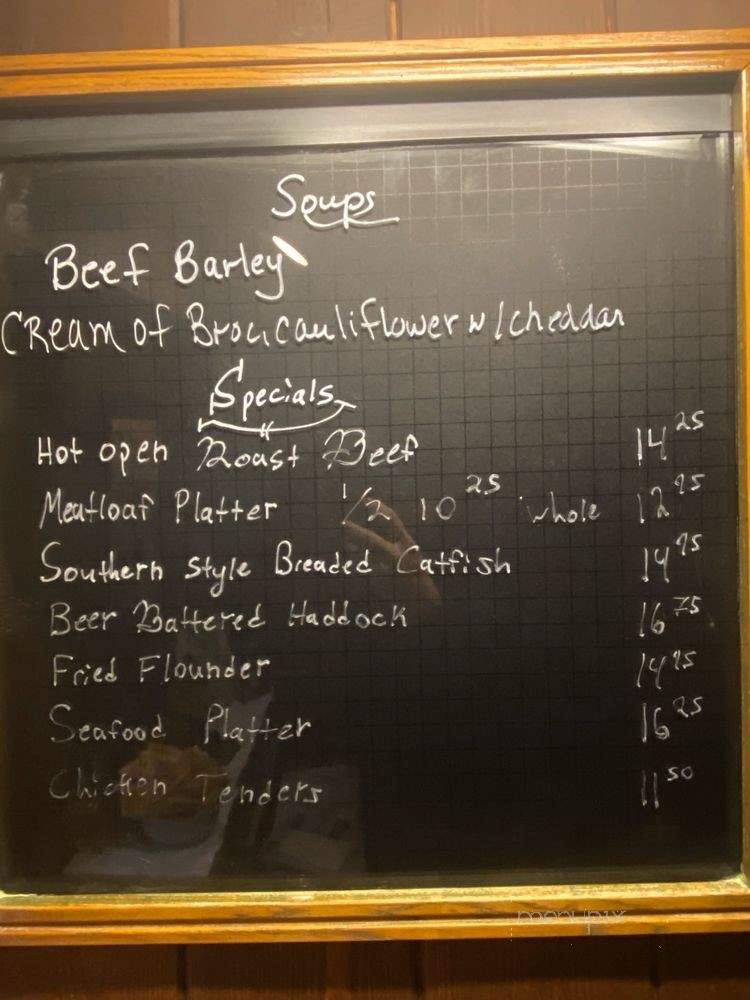 Soups
Beef Barley
Cream of Brocicauliflower w/cheddar
Specials
Hot open Roast Beef 14 25
Meatloaf Platter 1/2 10 25 whole 12 95
Southern Style Breaded Catfish 14 95
Beer Battered Haddock 16 75
Fried Flounder 14 95
Seafood Platter 16 25
Chicken Tenders 11 50
menupix